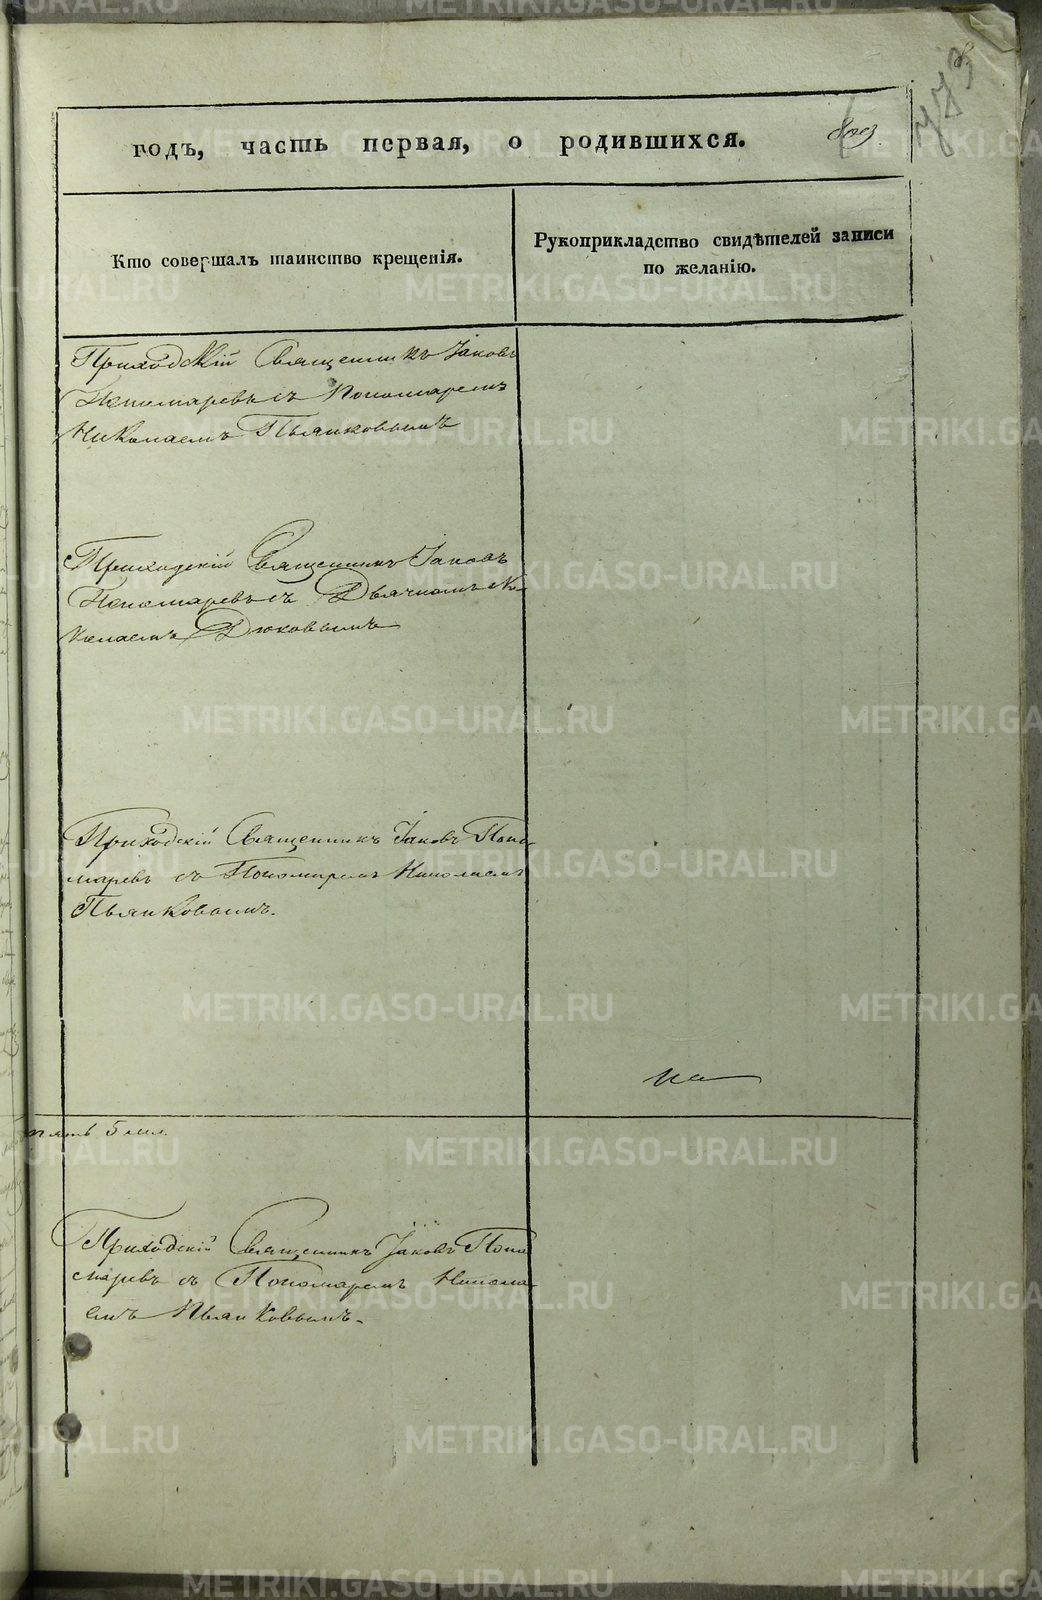 годъ, часть первая, о родившихся.
Кто совершалъ таинство крещенія.
Рукоприкладство свидѣтелей записи
по желанію.
Приходскій Священникъ Іаковъ
Пономаревъ съ Пономаремъ
Николаемъ Пьянковымъ
Приходскій Священникъ Іаковъ
Пономаревъ съ Дьячкомъ Ни-
колаемъ Дюковымъ
Приходскій Священникъ Іаковъ Поно-
маревъ съ Пономаремъ Николаемъ
Пьянковымъ.
на
пять 5
Приходскій Священникъ Іаковъ Поно
маревъ съ Пономаремъ Никола-
емъ Пьянковымъ.
METRIKI.GASO-URAL.RU